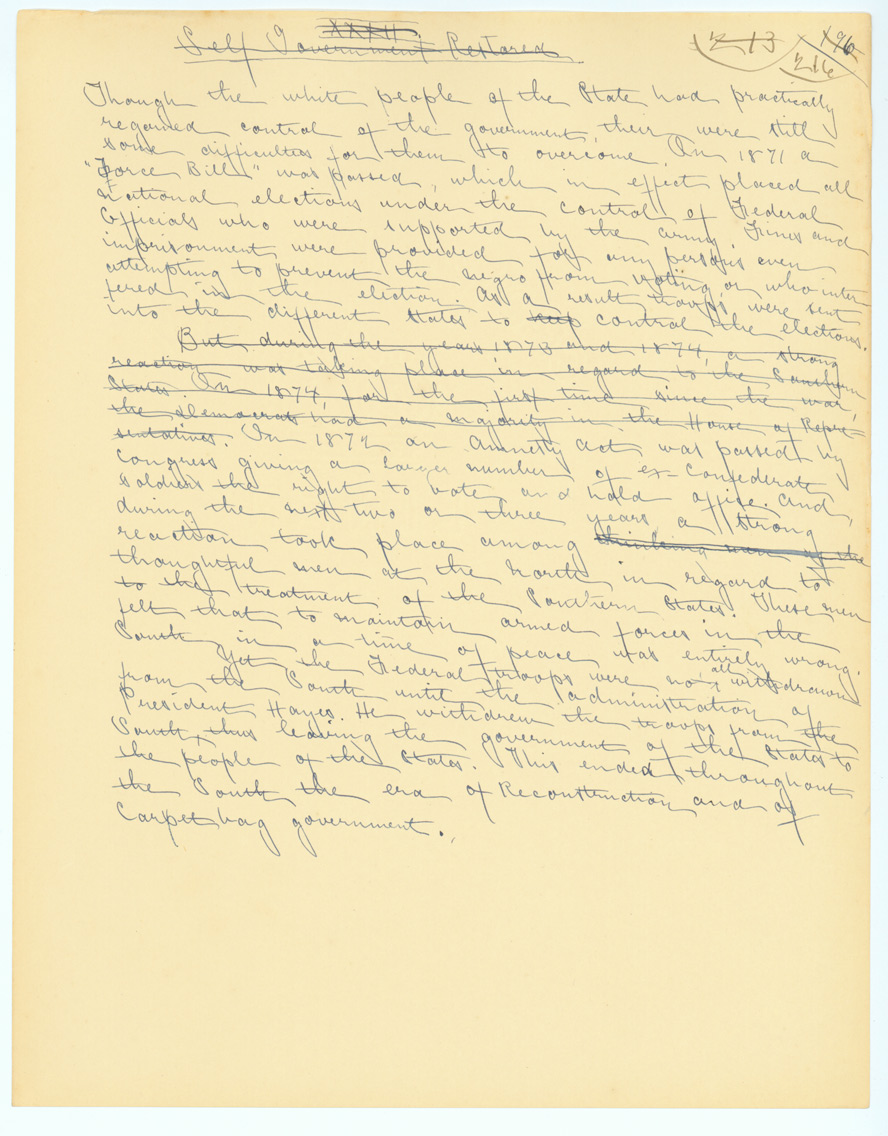 XXXII.
Self Government Restored
213 196
216
Though the white people of the State had practically
regained control of the government, their were still
some difficulties for them to overcome. In 1871 a
"Force Bill" was passed, which in effect placed all
national elections under the control of Federal
Officials who were supported by the army. Fines and
imprisonment were provided for any persons even
attempting to prevent the negro from voting or who inter
fered in the election. As a result troops were sent
into the different states to keep control the elections.
But during the years 1873 and 1874, a strong
reaction was taking place in regard to the Southern
States. In 1874, for the first time since the war,
the Democrats had a majority in the House of Repre-
sentatives. In 1872 an Amnesty act was passed by
Congress giving a large number of ex-Confederate
soldiers the right to vote and hold office. And,
during the next two or three years a strong
reaction took place among thinking men of the
thoughtful men at the North in regard to
to the treatment of the Southern States. These men
felt that to maintain armed forces in the
South in a time of peace was entirely wrong.
Yet the Federal troops were not all withdrawn
from the South until the administration of
President Hayes. He withdrew the troops from the
South, thus leaving the government of the States to
the people of the States. This ended throughout
the South the era of Reconstruction and of
Carpetbag government.